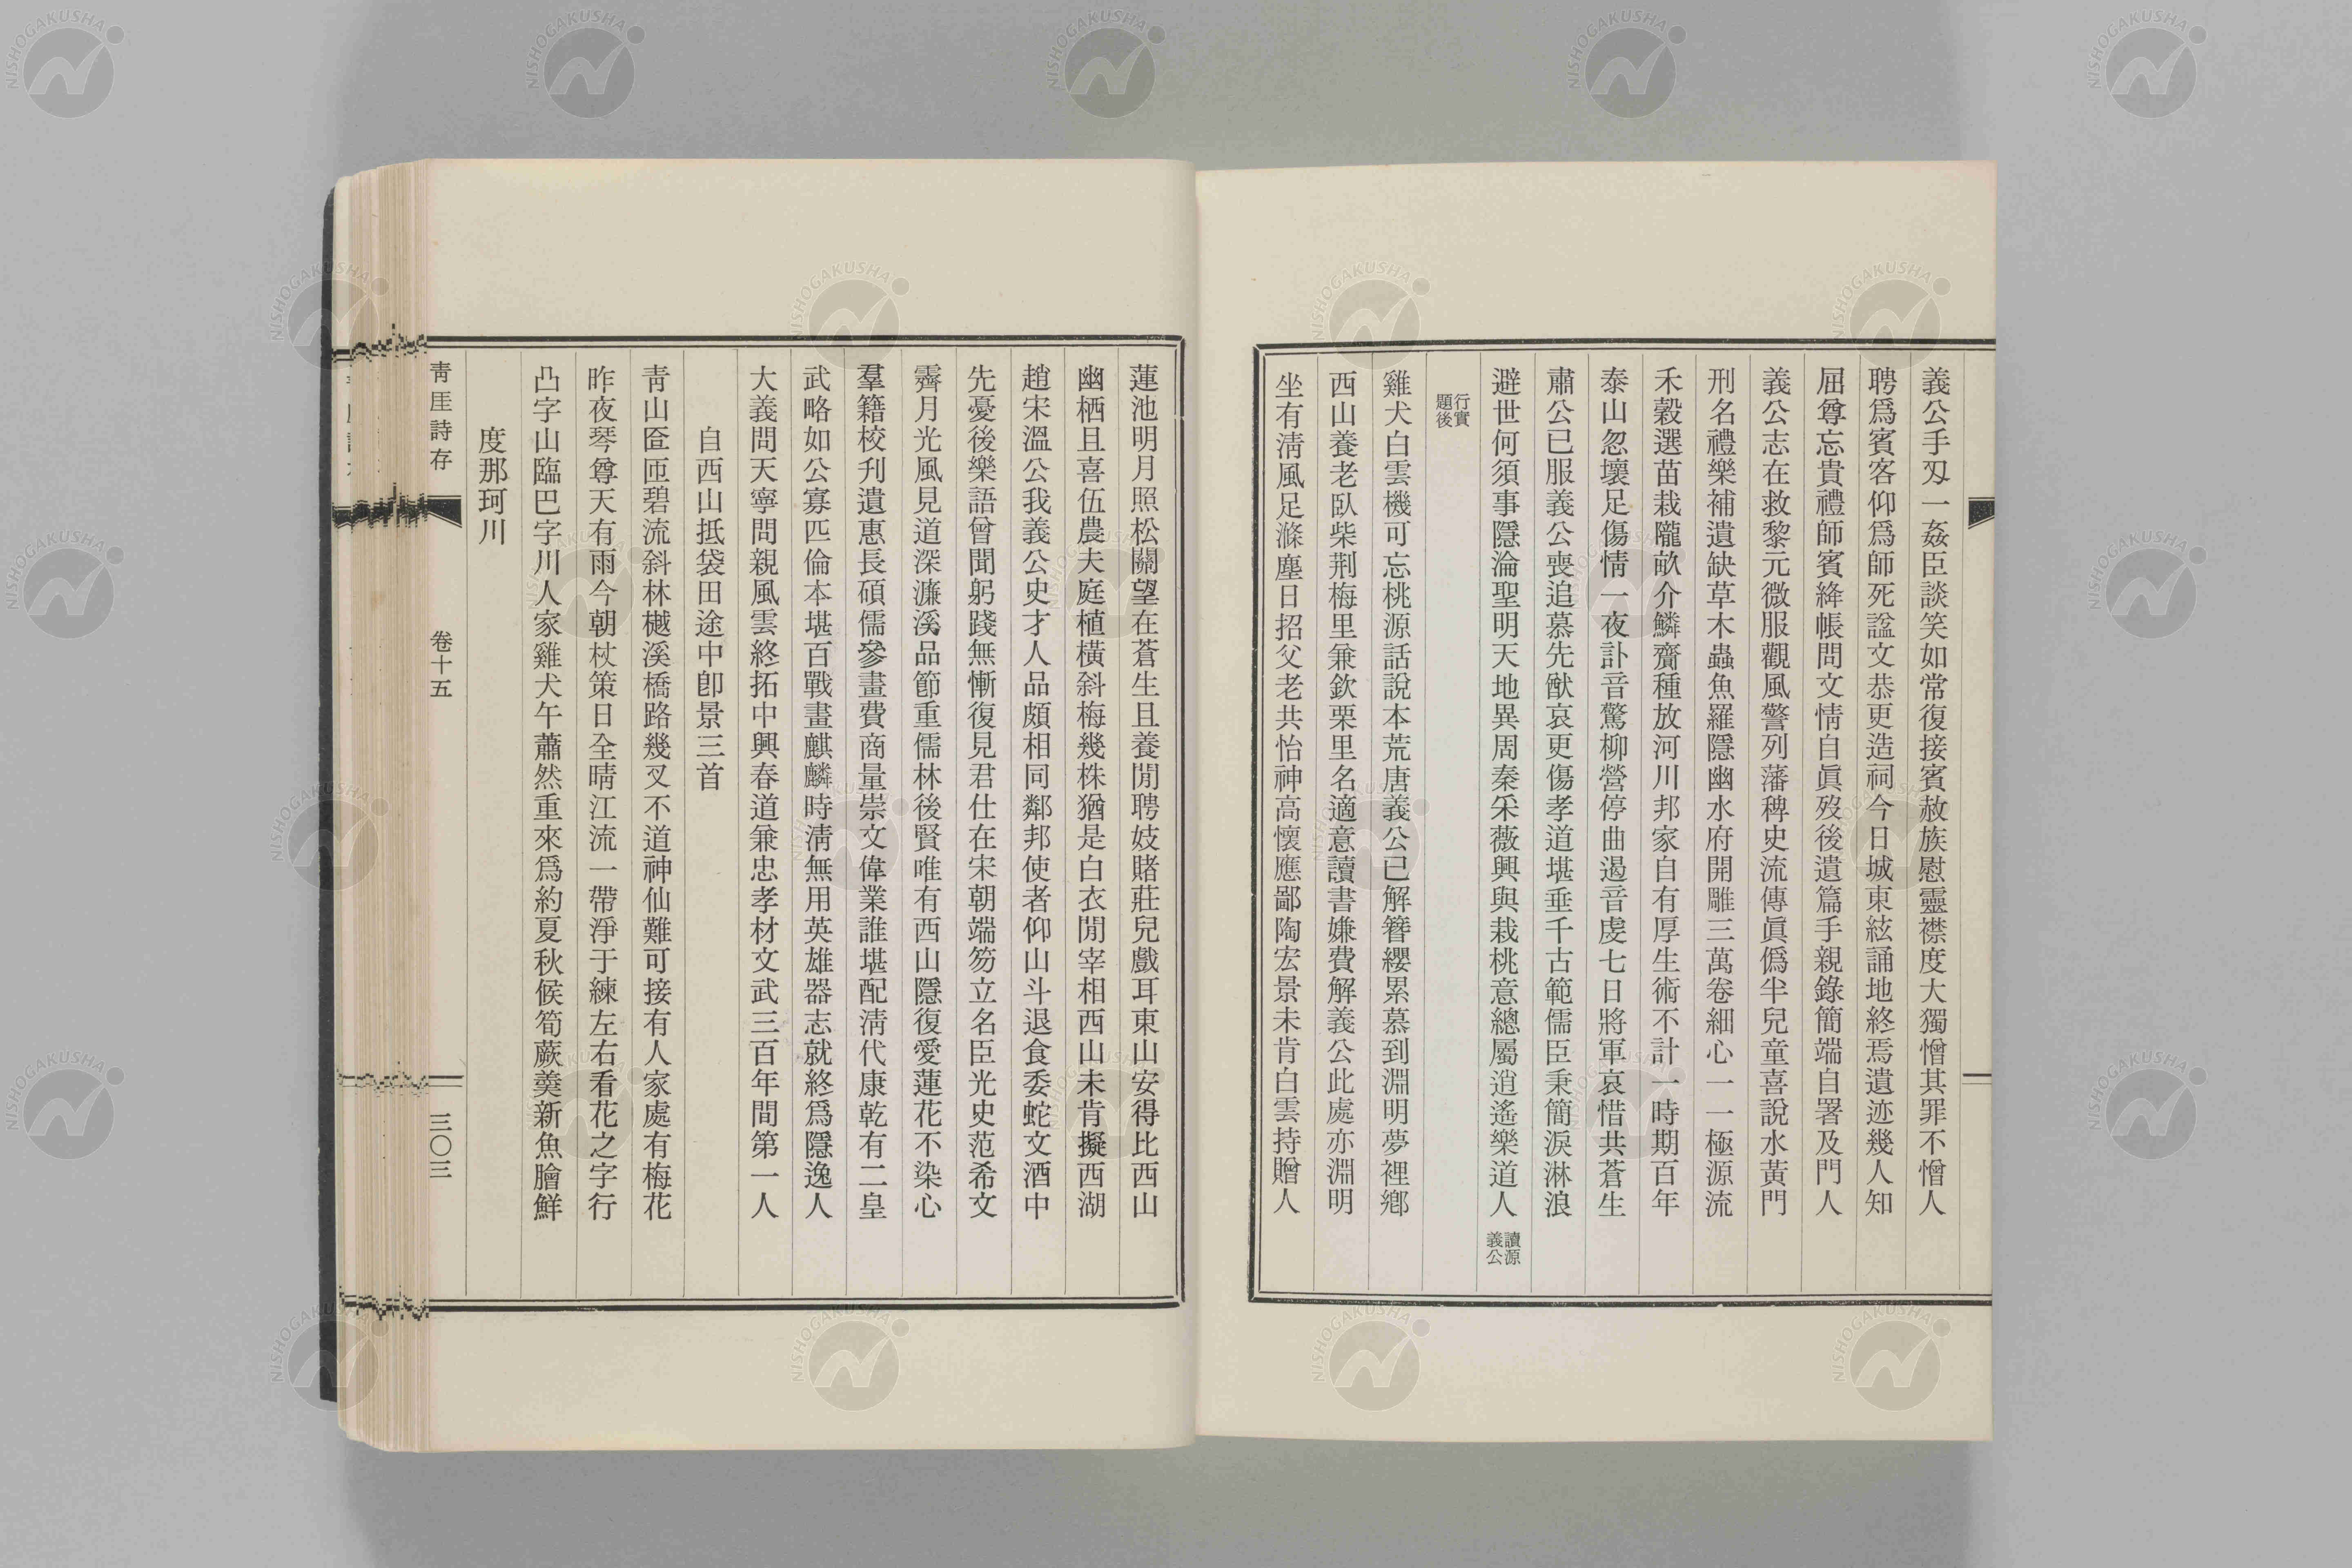 義公手刄一姦臣談笑如常復接賓赦族慰靈襟度大獨憎其罪不憎人
聘爲賓客仰爲師死諡文恭更造祠今日城東絃誦地終焉遺迹幾人知
屈尊忘貴禮師賓絳帳問文情自眞歿後遺篇手親錄簡端自署及門人
義公志在救黎元微服觀風警列藩稗史流傳眞僞半兒童喜說水黃門
刑名禮樂補遺缺草木蟲魚羅隱幽水府開雕三萬卷細心一一極源流
禾穀選苗栽隴畝介鱗齎種放河川邦家自有厚生術不計一時期百年
泰山忽壞足傷情一夜訃音驚柳營停曲遏音虔七日將軍哀惜共蒼生
肅公已服義公喪追慕先猷哀更傷孝道堪垂千古範儒臣秉簡淚淋浪
避世何須事隱淪聖明天地異周秦采薇興與栽桃意總屬逍遙樂道人 讀源義公
行實題後
雞犬白雲機可忘桃源話說本荒唐義公已解簪纓累慕到淵明夢裡鄕
西山養老臥柴荆梅里兼欽栗里名適意讀書嫌費解義公此處亦淵明
坐有淸風足滌塵日招父老共怡神高懷應鄙陶宏景未肯白雲持贈人
蓮池明月照松關望在蒼生且養閒聘妓賭莊兒戲耳東山安得比西山
幽栖且喜伍農夫庭植橫斜梅幾株猶是白衣閒宰相西山未肯擬西湖
趙宋溫公我義公史才人品頗相同鄰邦使者仰山斗退食委蛇文酒中
先憂後樂語曾聞躬踐無慚復見君仕在宋朝端笏立名臣光史范希文
霽月光風見道深濂溪品節重儒林後賢唯有西山隱復愛蓮花不染心
羣籍校刋遺惠長碩儒參畫費商量崇文偉業誰堪配淸代康乾有二皇
武略如公寡匹倫本堪百戰畫麒麟時淸無用英雄器志就終爲隱逸人
大義問天寧問親風雲終拓中興春道兼忠孝材文武三百年間第一人
自西山抵袋田途中卽景三首
靑山匼匝碧流斜林樾溪橋路幾叉不道神仙難可接有人家處有梅花
昨夜琴尊天有雨今朝杖策日全晴江流一帶淨于練左右看花之字行
凸字山臨巴字川人家雞犬午蕭然重來爲約夏秋候筍蕨羹新魚膾鮮
度那珂川
靑厓詩存 卷十五 三〇三